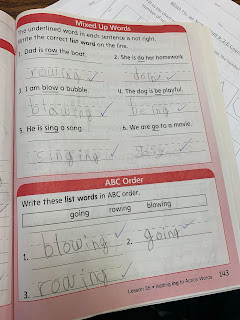 Mixed Up Words
The underlined word in each sentence is not right.
Write the correct list word on the line.
1. Dad is row the boat.
2. She is do her homework.
rowing
doing
3. I am blow a bubble.
4. The dog is be playful.
blowing
being
5. He is sing a song.
6. We are go to a movie.
singing
going
ABC Order
Write these list words in ABC order.
going rowing blowing
1. blowing 2. going
3. rowing
Adding ing to Action Words 143